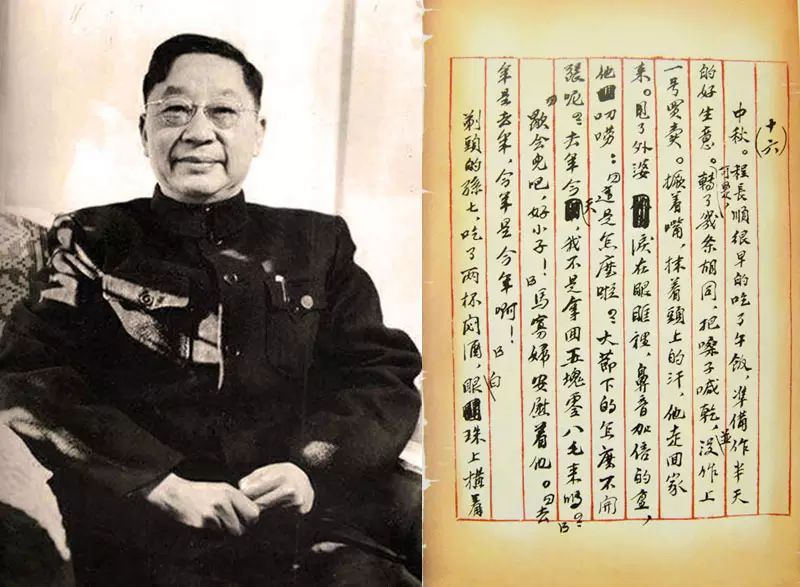 (十六)
中秋。程長順很早的吃了午飯,準備作半天
的好生意。可是,轉了幾条胡同,把嗓子喊乾,並没作上
一号買卖。撅着嘴,抹着頭上的汗,他走回家
来。見了外婆,淚在眼眶裡,鼻音加倍的重,
他叨唠:「這是怎麽啦?大節下的怎麽不開
張呢?去年今天,我不是拿回五塊零八毛来嗎?」
「歇会兒吧,好小子!」馬寡婦安慰着他。「去
年是去年,今年是今年啊!」
剃頭的孫七,吃了兩杯闷酒,白眼珠上横着